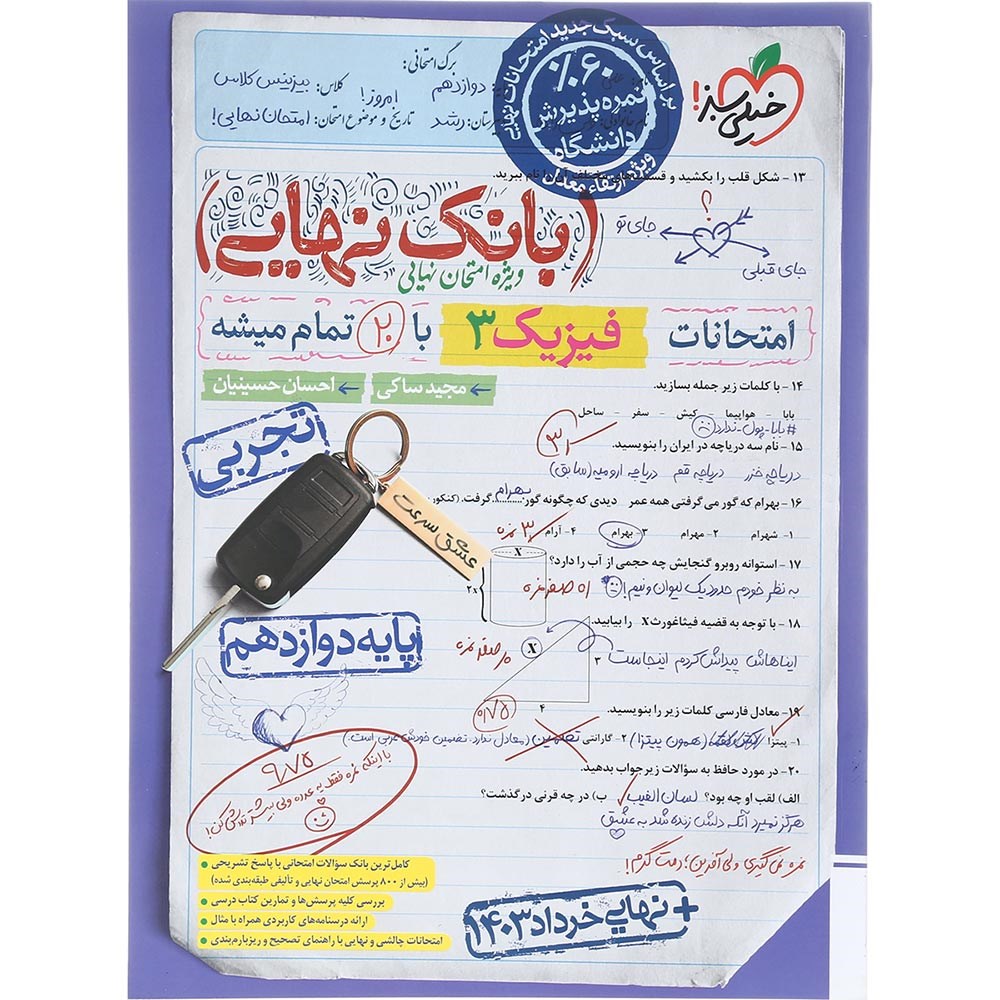 خیلی سبز!
براساس سبک جدید امتحانات نهایی
۶۰٪
نمره پذیرش
دانشگاه
ویژه ارتقاء معدل
برگ امتحانی:
دوازدهم
کلاس: بیزینس کلاس
رشد
تاریخ و موضوع امتحان: امروز! امتحان نهایی!
۱۳ - شکل قلب را بکشید و قسمت‌های مختلف آن را نام ببرید.
؟
جای تو
جای قبلی
(بانک نهایی)
ویژه امتحان نهایی
امتحانات فیزیک ۳ با ۲۰ تمام میشه
مجید ساکی ← احسان حسینیان ←
۱۴ - با کلمات زیر جمله بسازید.
بابا - هواپیما - کیش - سفر - ساحل
#بابا-پول-ندارد
۱۵ - نام سه دریاچه در ایران را بنویسید.
دریاچه خزر دریاچه قم دریاچه ارومیه (سابق)
تجربی
عشق سرعت
۱۶ - بهرام که گور می گرفتی همه عمر دیدی که چگونه گور بهرام گرفت. (کنکور
۱- شهرام ۲- مهرام ۳- بهرام ۴- آرام
۱۷ - استوانه روبرو گنجایش چه حجمی از آب را دارد؟
X
۲x
به نظر خودم حدود یک لیوان و نیم!
۱۸ - با توجه به قضیه فیثاغورث X را بیابید.
X
۳
۴
ایناهاش پیداش کردم اینجاست
پایه دوازدهم
۰/۷۵
۱۹ - معادل فارسی کلمات زیر را بنویسید.
۱- پیتزا (همون پیتزا) ۲- گارانتی تضمین (معادل ندارد، تضمین خودش عربی است.)
۲۰ - در مورد حافظ به سؤالات زیر جواب بدهید.
الف) لقب او چه بود؟ لسان الغیب ب) در چه قرنی درگذشت؟
هرگز نمیرد آنکه دلش زنده شد به عشق
۹/۷۵
با اینکه نمره فقط یه عدده ولی بیشتر تلاش کن!
نمره نمی‌گیری ولی آفرین؛ دمت گرم!
کامل‌ترین بانک سؤالات امتحانی با پاسخ تشریحی
(بیش از ۸۰۰ پرسش امتحان نهایی و تألیفی طبقه‌بندی شده)
بررسی کلیه پرسش‌ها و تمارین کتاب درسی
ارائه درسنامه‌های کاربردی همراه با مثال
امتحانات چالشی و نهایی با راهنمای تصحیح و ریزبارم‌بندی
+ نهایی خرداد ۱۴۰۳